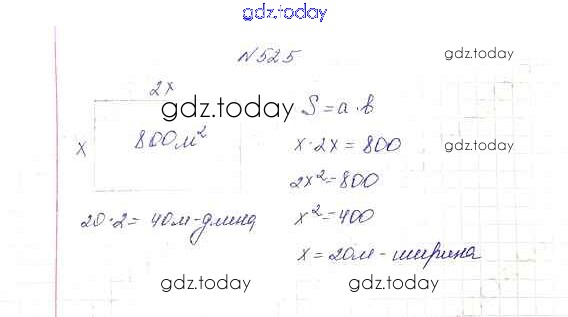 gdz.today
N525
gdz.today
2x
gdz.today
S = a · b
x
800м²
x · 2x = 800
gdz.today
2x² = 800
20 · 2 = 40м - длина
x² = 400
x = 20м - ширина
gdz.today
gdz.today